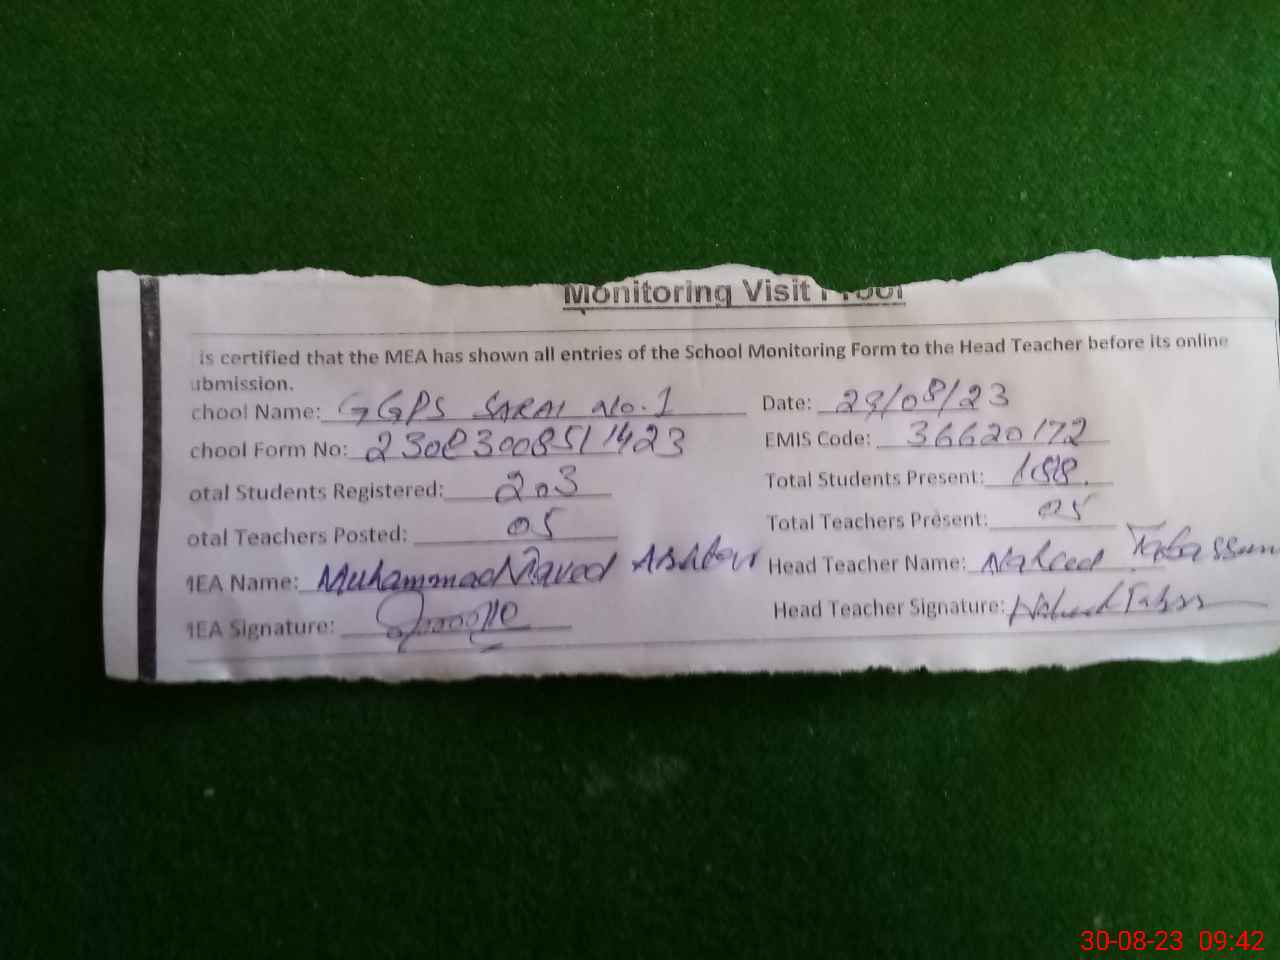 Monitoring Visit Proof
is certified that the MEA has shown all entries of the School Monitoring Form to the Head Teacher before its online
ubmission.
chool Name: GGPS SARAI No.1 Date: 29/08/23
chool Form No: 23083008511423 EMIS Code: 36620172
otal Students Registered: 203 Total Students Present: 188
otal Teachers Posted: 05 Total Teachers Present: 05
MEA Name: Muhammad Naveed Head Teacher Name: Naheed Tabassum
MEA Signature: Head Teacher Signature:
30-08-23 09:42